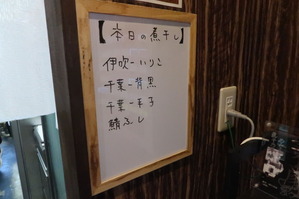 【本日の煮干し】
伊吹－いりこ
千葉－背黒
千葉－平子
鯖ふし